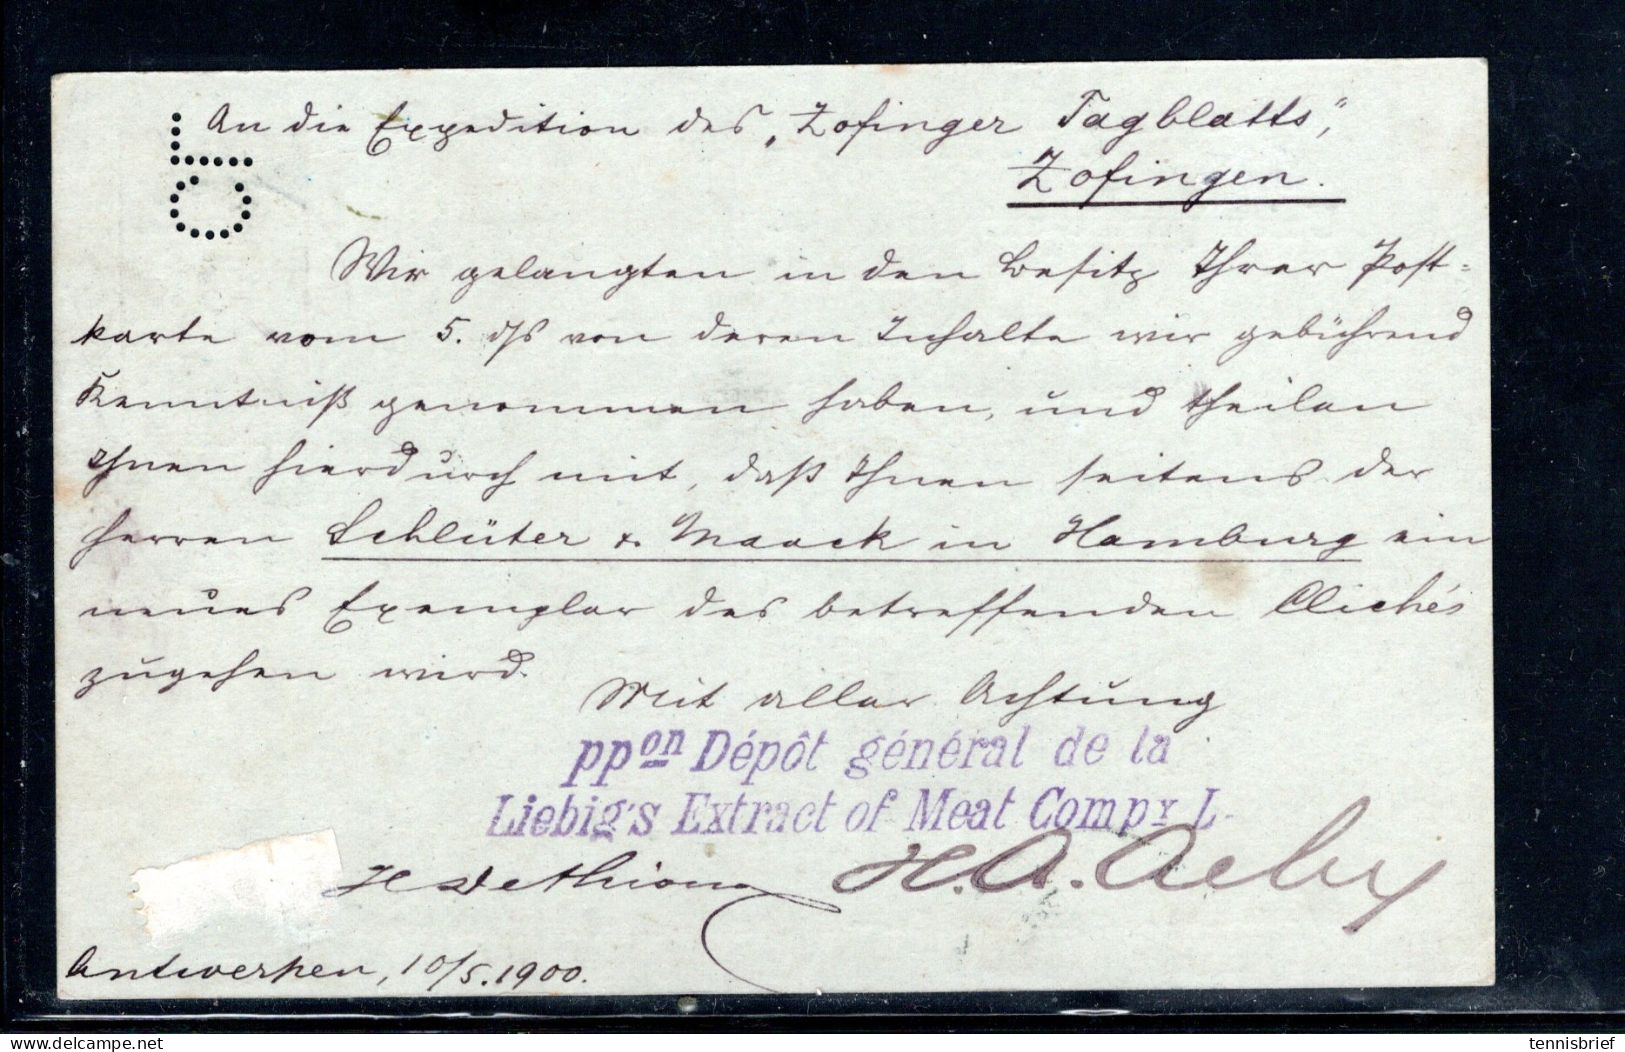 An die Expedition des „Zofinger Tagblatts“,
Zofingen.
Wir gelangten in den Besitz Ihrer Post-
karte vom 5. ds von deren Inhalte wir gebührend
Kenntniß genommen haben, und theilen
Ihnen hierdurch mit, daß Ihnen seitens der
Herren Schlüter & Maack in Hamburg ein
neues Exemplar des betreffenden Clichés
zugehen wird.
Mit aller Achtung
ppon Dépôt général de la
Liebig's Extract of Meat Compy L.
H. A. Aeby
Antwerpen, 10/5.1900.
tennisbrief